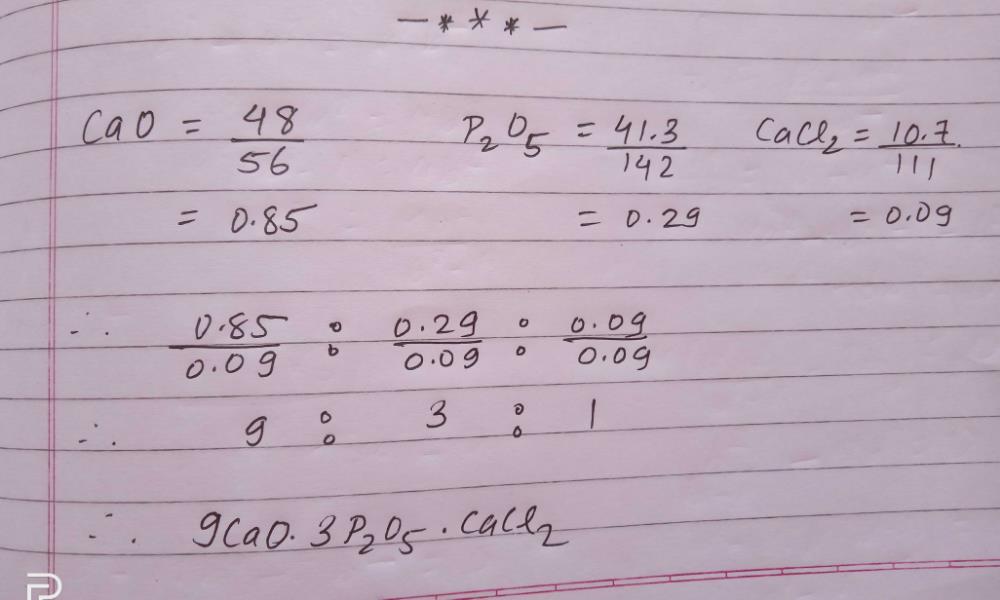 — * * * —
CaO = 48/56 P₂O₅ = 41.3/142 CaCl₂ = 10.7/111
= 0.85 = 0.29 = 0.09
∴ 0.85/0.09 : 0.29/0.09 : 0.09/0.09
∴ 9 : 3 : 1
∴ 9CaO. 3P₂O₅ . CaCl₂